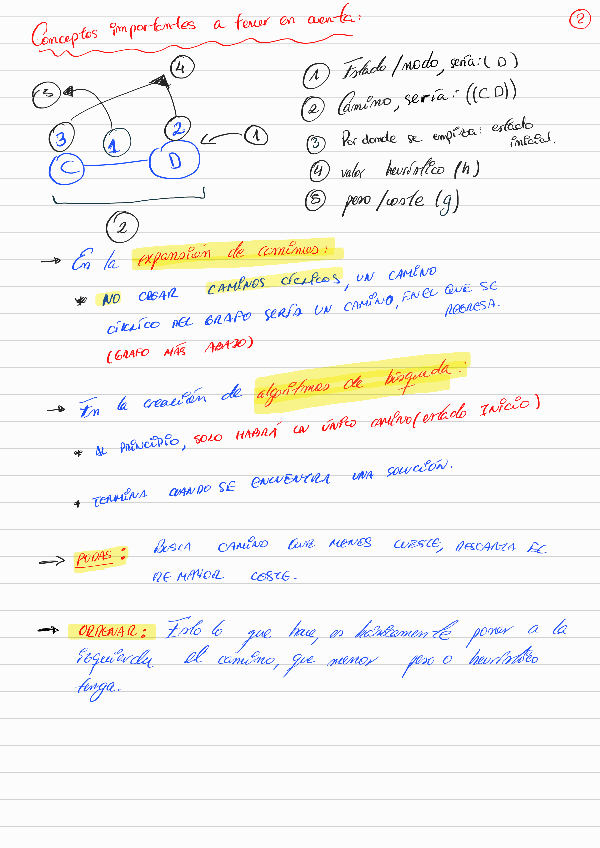 Conceptos importantes a tener en cuenta:
2
4
5
3
1
2
1
C
D
2
1 Estado/nodo, sería: (D)
2 Camino, sería: ((CD))
3 Por donde se empieza: estado
inicial.
4 valor heurístico (h)
5 peso/coste (g)
→ En la expansión de caminos:
* NO CREAR CAMINOS CÍCLICOS, UN CAMINO
CÍCLICO DEL GRAFO SERÍA UN CAMINO, EN EL QUE SE
REGRESA.
(GRAFO MÁS ABAJO)
→ En la creación de algoritmos de búsqueda:
* AL PRINCIPIO, SOLO HABRÁ UN ÚNICO CAMINO (estado INICIO)
* TERMINA CUANDO SE ENCUENTRA UNA SOLUCIÓN.
→ PODAS: BUSCA CAMINO QUE MENOS CUESTE, DESCARTA EL
DE MAYOR COSTE.
→ ORDENAR: Esto lo que hace, es básicamente poner a la
izquierda el camino, que menor peso o heurístico
tenga.